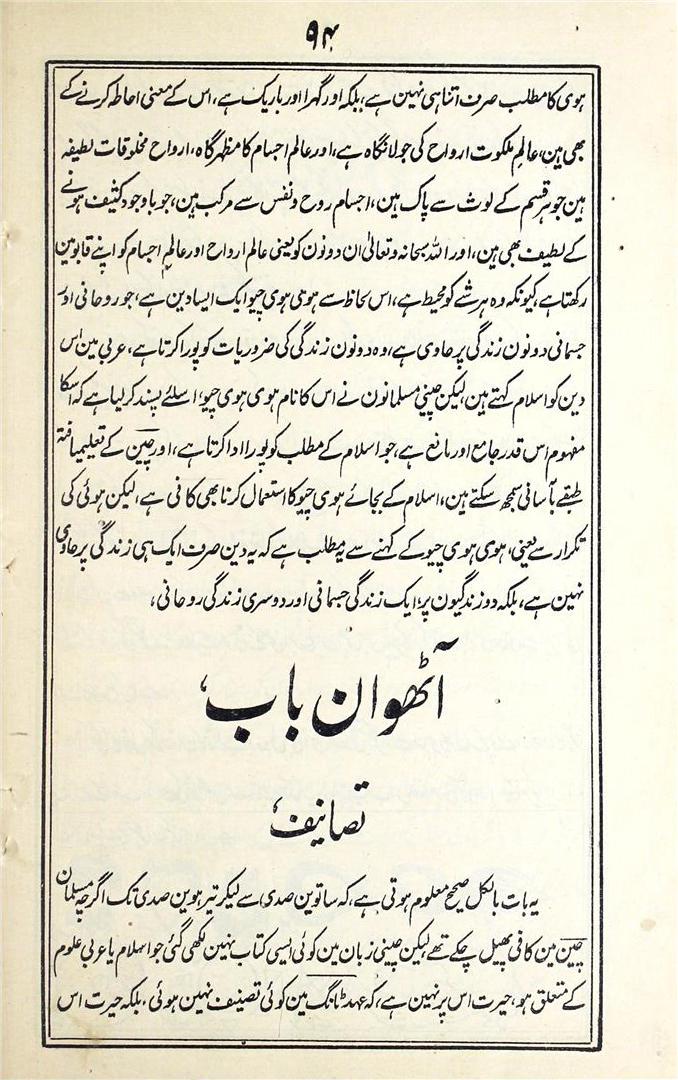 ۹۴
ہوی کا مطلب صرف اتنا ہی نہین ہے، بلکہ اور گہرا اور باریک ہے، اس کے معنی احاطہ کرنے کے
بھی ہین، عالم ملکوت ارواح کی جولانگاہ ہے، اور عالم اجسام کا مظہر گاہ، ارواح مخلوقات لطیفہ
ہین جو ہر قسم کے لوث سے پاک ہین، اجسام روح و نفس سے مرکب ہین، جو باوجود کثیف ہونے
کے لطیف بھی ہین، اور اللہ سبحانہ و تعالیٰ ان دونون کو یعنی عالم ارواح اور عالم اجسام کو اپنے قابو مین
رکھتا ہے، کیونکہ وہ ہر شے کو محیط ہے، اس لحاظ سے ہوی ہوی چیو ایک ایسا دین ہے، جو روحانی اور
جسمانی دونون زندگی پر حاوی ہے، وہ دونون زندگی کی ضروریات کو پورا کرتا ہے، عربی مین اس
دین کو اسلام کہتے ہین، لیکن چینی مسلمانون نے اس کا نام ہوی ہوی چیو، اسلئے پسند کر لیا ہے کہ اسکا
مفہوم اس قدر جامع اور مانع ہے، جو اسلام کے مطلب کو پورا ادا کرتا ہے، اور چین کے تعلیمیافتہ
طبقے بآسانی سمجھ سکتے ہین، اسلام کے بجائے ہوی چیو کا استعمال کرنا بھی کافی ہے، لیکن ہوئی کی
تکرار سے یعنی، ہوی ہوی چیو کے کہنے سے یہ مطلب ہے کہ یہ دین صرف ایک ہی زندگی پر حاوی
نہین ہے، بلکہ دو زندگیون پر، ایک زندگی جسمانی اور دوسری زندگی روحانی،
آٹھوان باب،
تصانیف،
یہ بات بالکل صحیح معلوم ہوتی ہے، کہ ساتوین صدی سے لیکر تیرہوین صدی تک اگرچہ مسلمان
چین مین کافی پھیل چکے تھے لیکن چینی زبان مین کوئی ایسی کتاب نہین لکھی گئی جو اسلام یا عربی علوم
کے متعلق ہو، حیرت اس پر نہین ہے، کہ عہد ٹانگ مین کوئی تصنیف نہین ہوئی. بلکہ حیرت اس